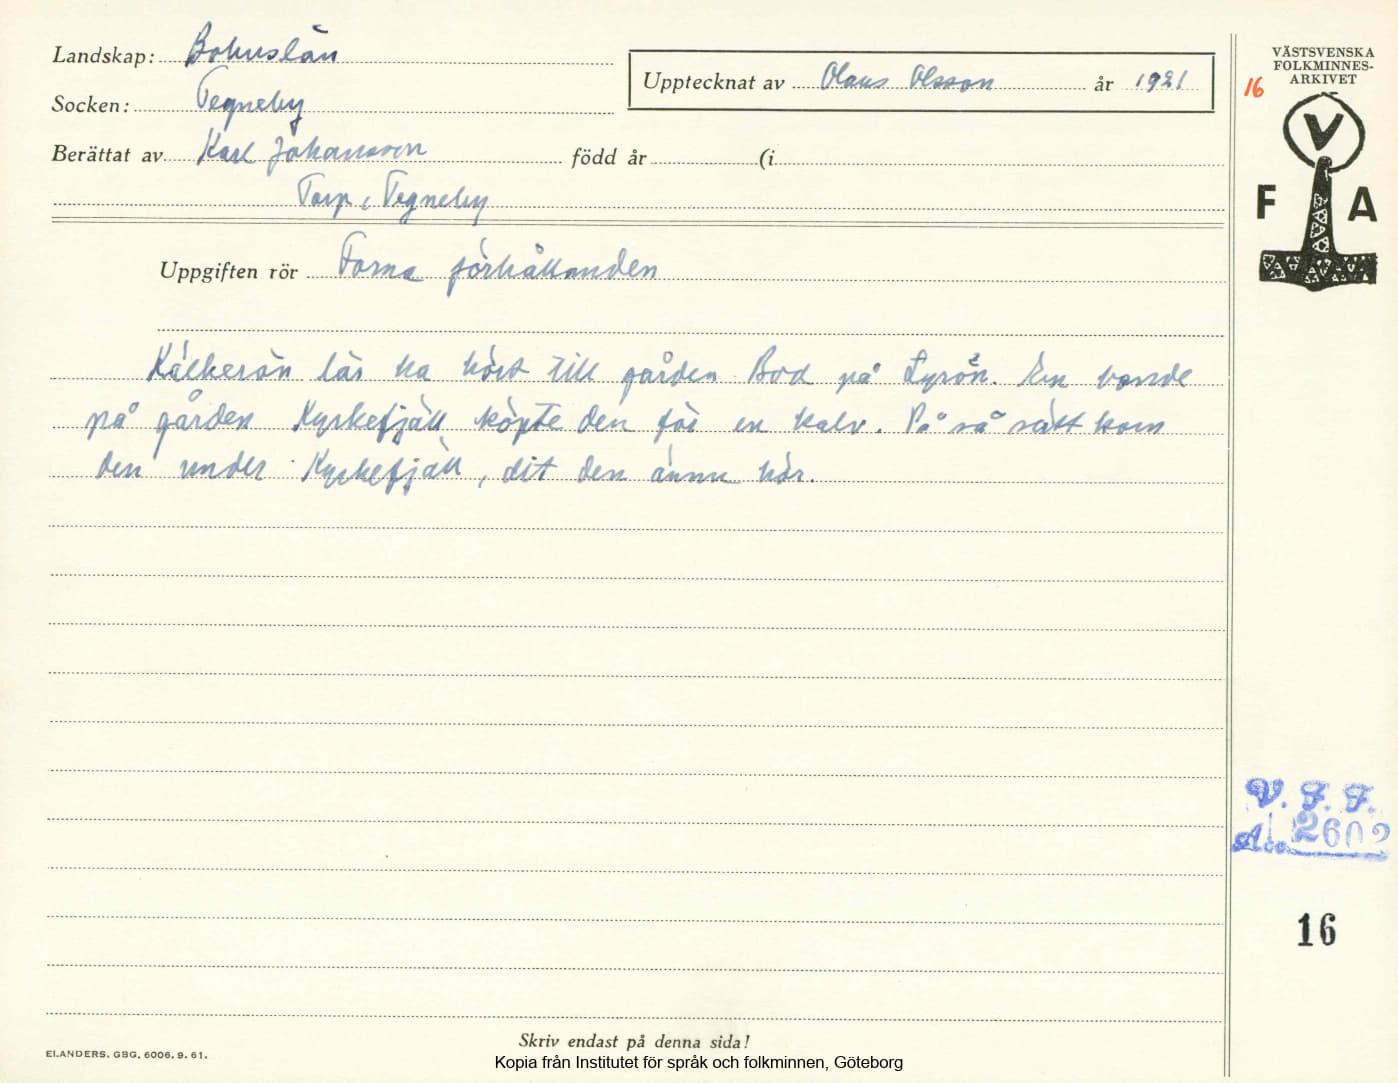 Landskap: Bohuslän
Upptecknat av Olaus Olsson år 1921
Socken: Tegneby
Berättat av Karl Johansson född år (i
Torp, Tegneby
Uppgiften rör Forna förhållanden
Kälkerön lär ha hört till gården Bod på Lyrön. En bonde
på gården Kyrkefjäll köpte den för en kalv. På så sätt kom
den under Kyrkefjäll, dit den ännu hör.
VÄSTSVENSKA
FOLKMINNES-
ARKIVET
16
V
F A
V. F. F.
Acc. 2602
16
Skriv endast på denna sida!
ELANDERS, GBG, 6006. 9. 61.
Kopia från Institutet för språk och folkminnen, Göteborg